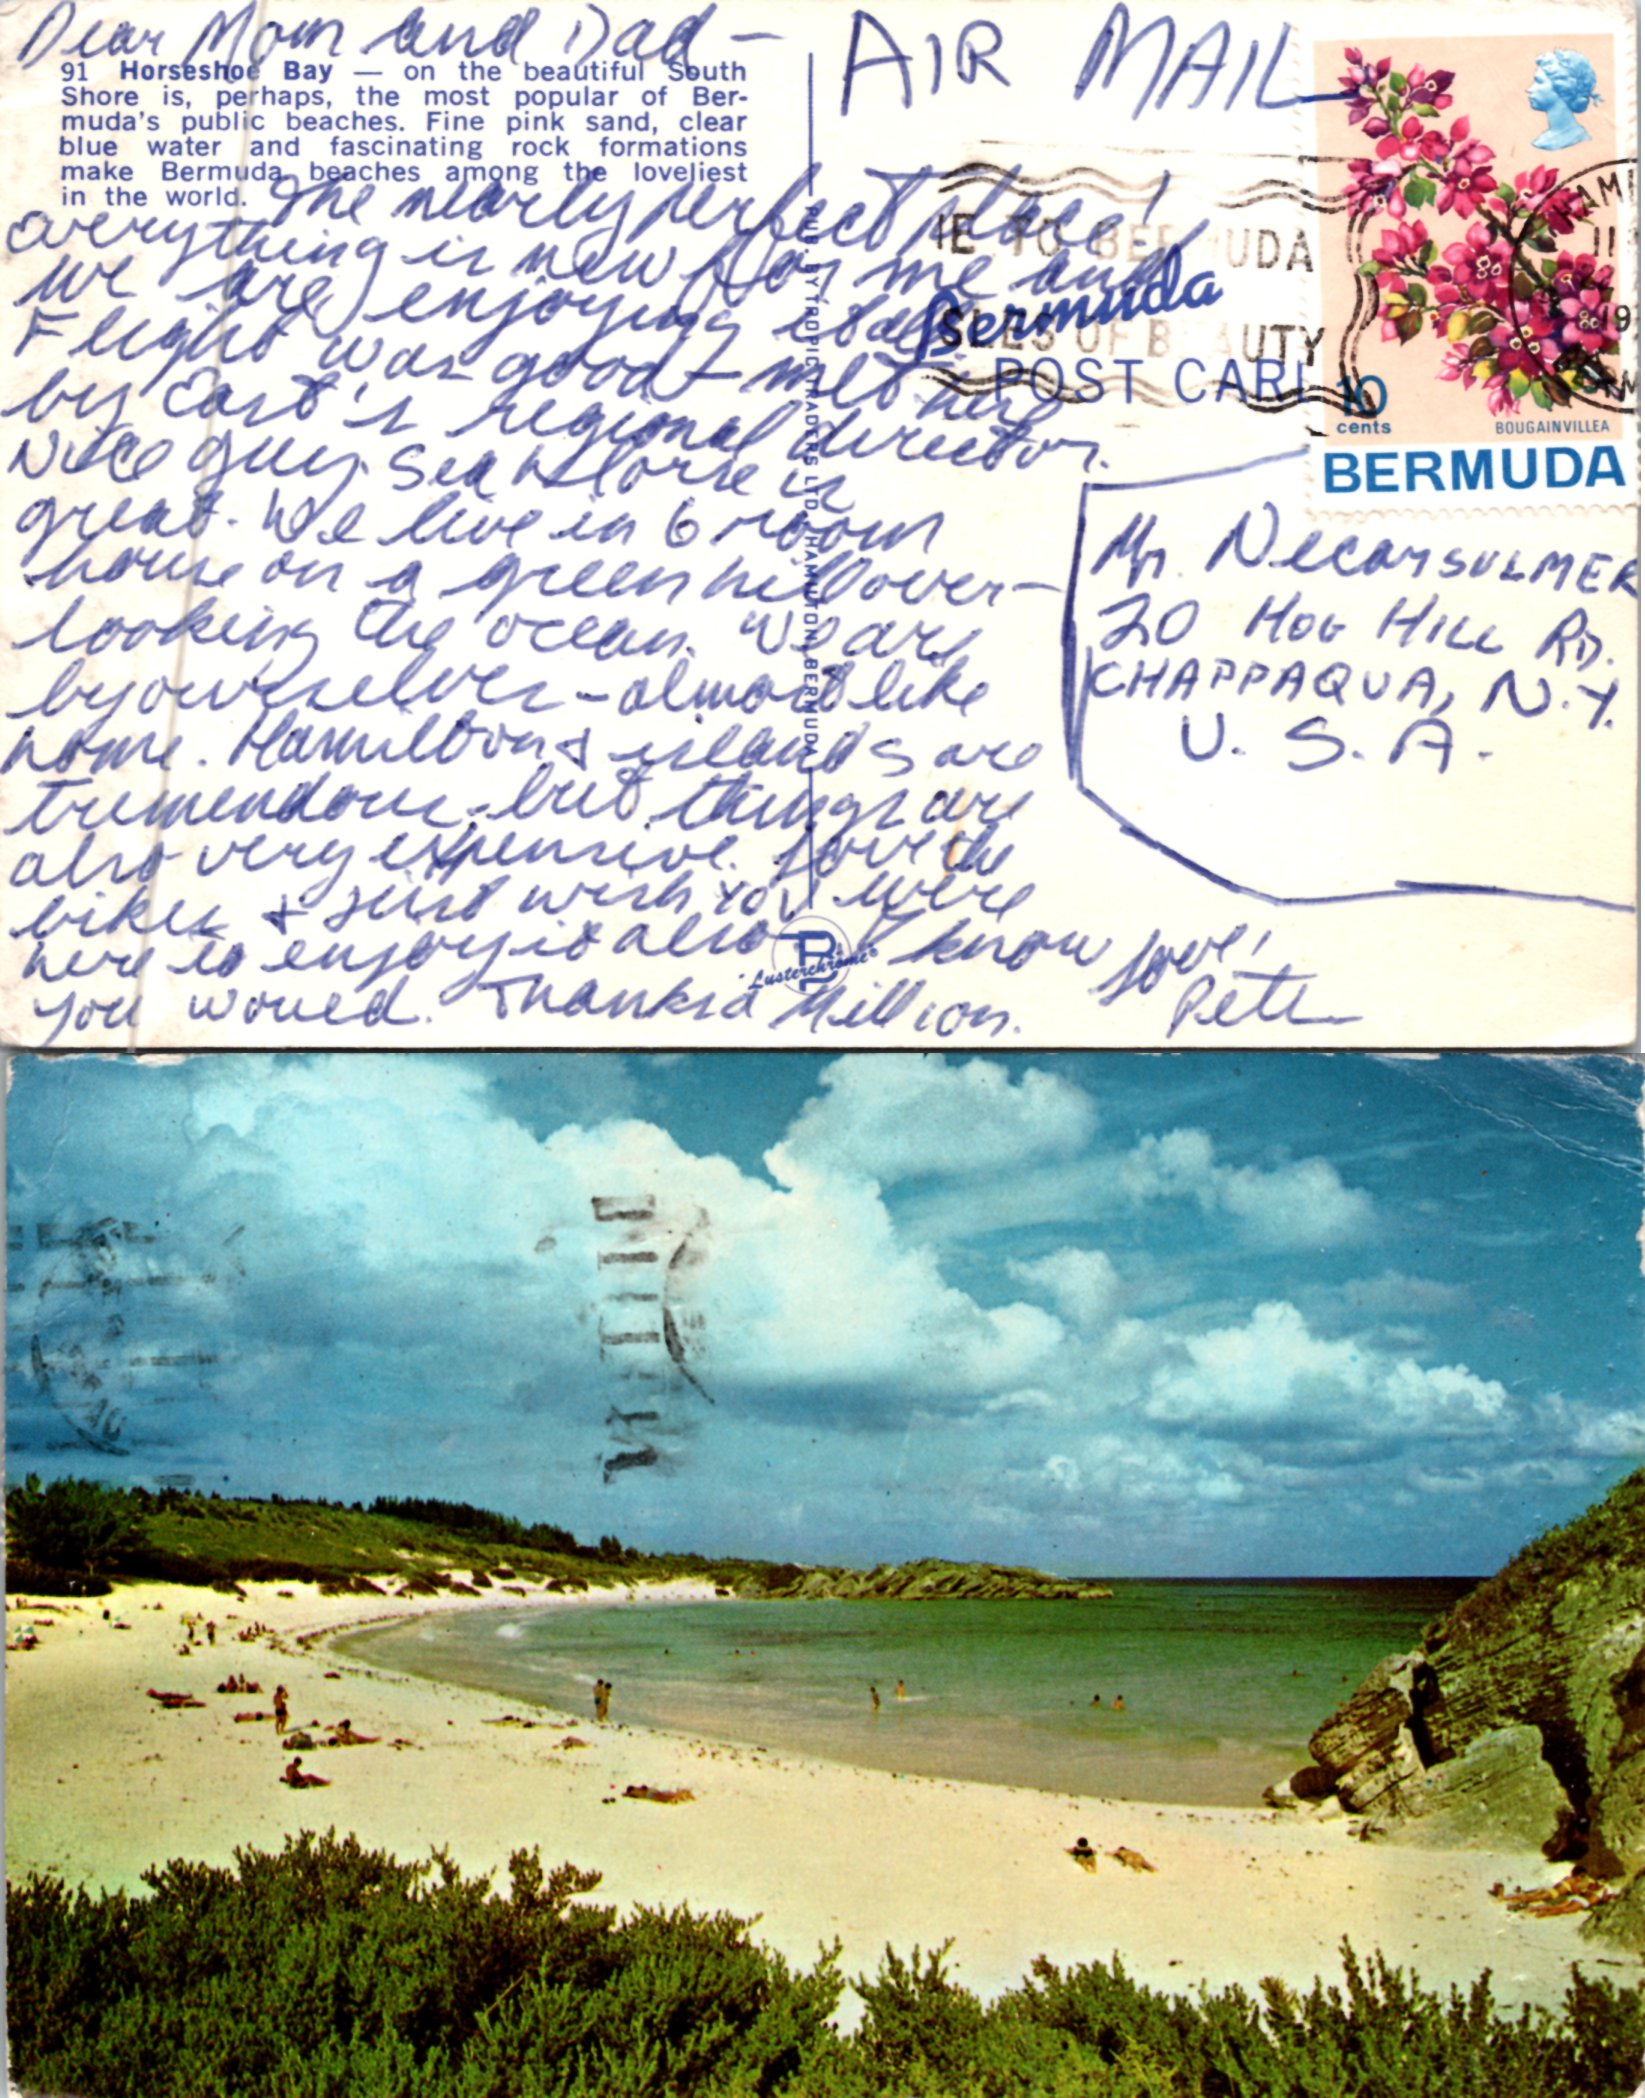 Dear Mom and Dad —
91 Horseshoe Bay — on the beautiful South
Shore is, perhaps, the most popular of Ber-
muda's public beaches. Fine pink sand, clear
blue water and fascinating rock formations
make Bermuda beaches among the loveliest
in the world.
The nearly perfect place!
everything is new for me and
we are enjoying it all.
Flight was good – met here
by East's regional director.
Nice guy. Sea Horse is
great. We live in 6 room
house on a green hill over-
looking the ocean. We are
by ourselves – almost like
home. Hamilton & islands are
tremendous – but things are
also very expensive. Love the
bikes & just wish you were
here to enjoy it also. I know
you would. Thanks a Million.
Love!
Pete
AIR MAIL
IE TO BERMUDA
ISLES OF BEAUTY
Bermuda
POST CARD
PUB. BY TROPIC TRADERS LTD. HAMILTON, BERMUDA
"Lusterchrome"
HAM
10
cents
BOUGAINVILLEA
BERMUDA
Mr. Necarsulmer
20 Hog Hill Rd.
CHAPPAQUA, N.Y.
U. S. A.